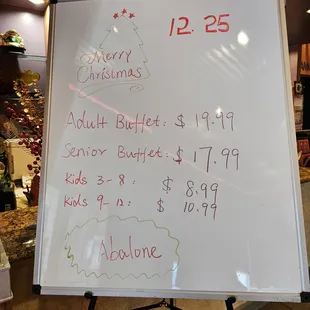 12.25
Merry
Christmas
Adult Buffet: $ 19.99
Senior Buffet: $ 17.99
Kids 3-8: $ 8.99
Kids 9-12: $ 10.99
Abalone